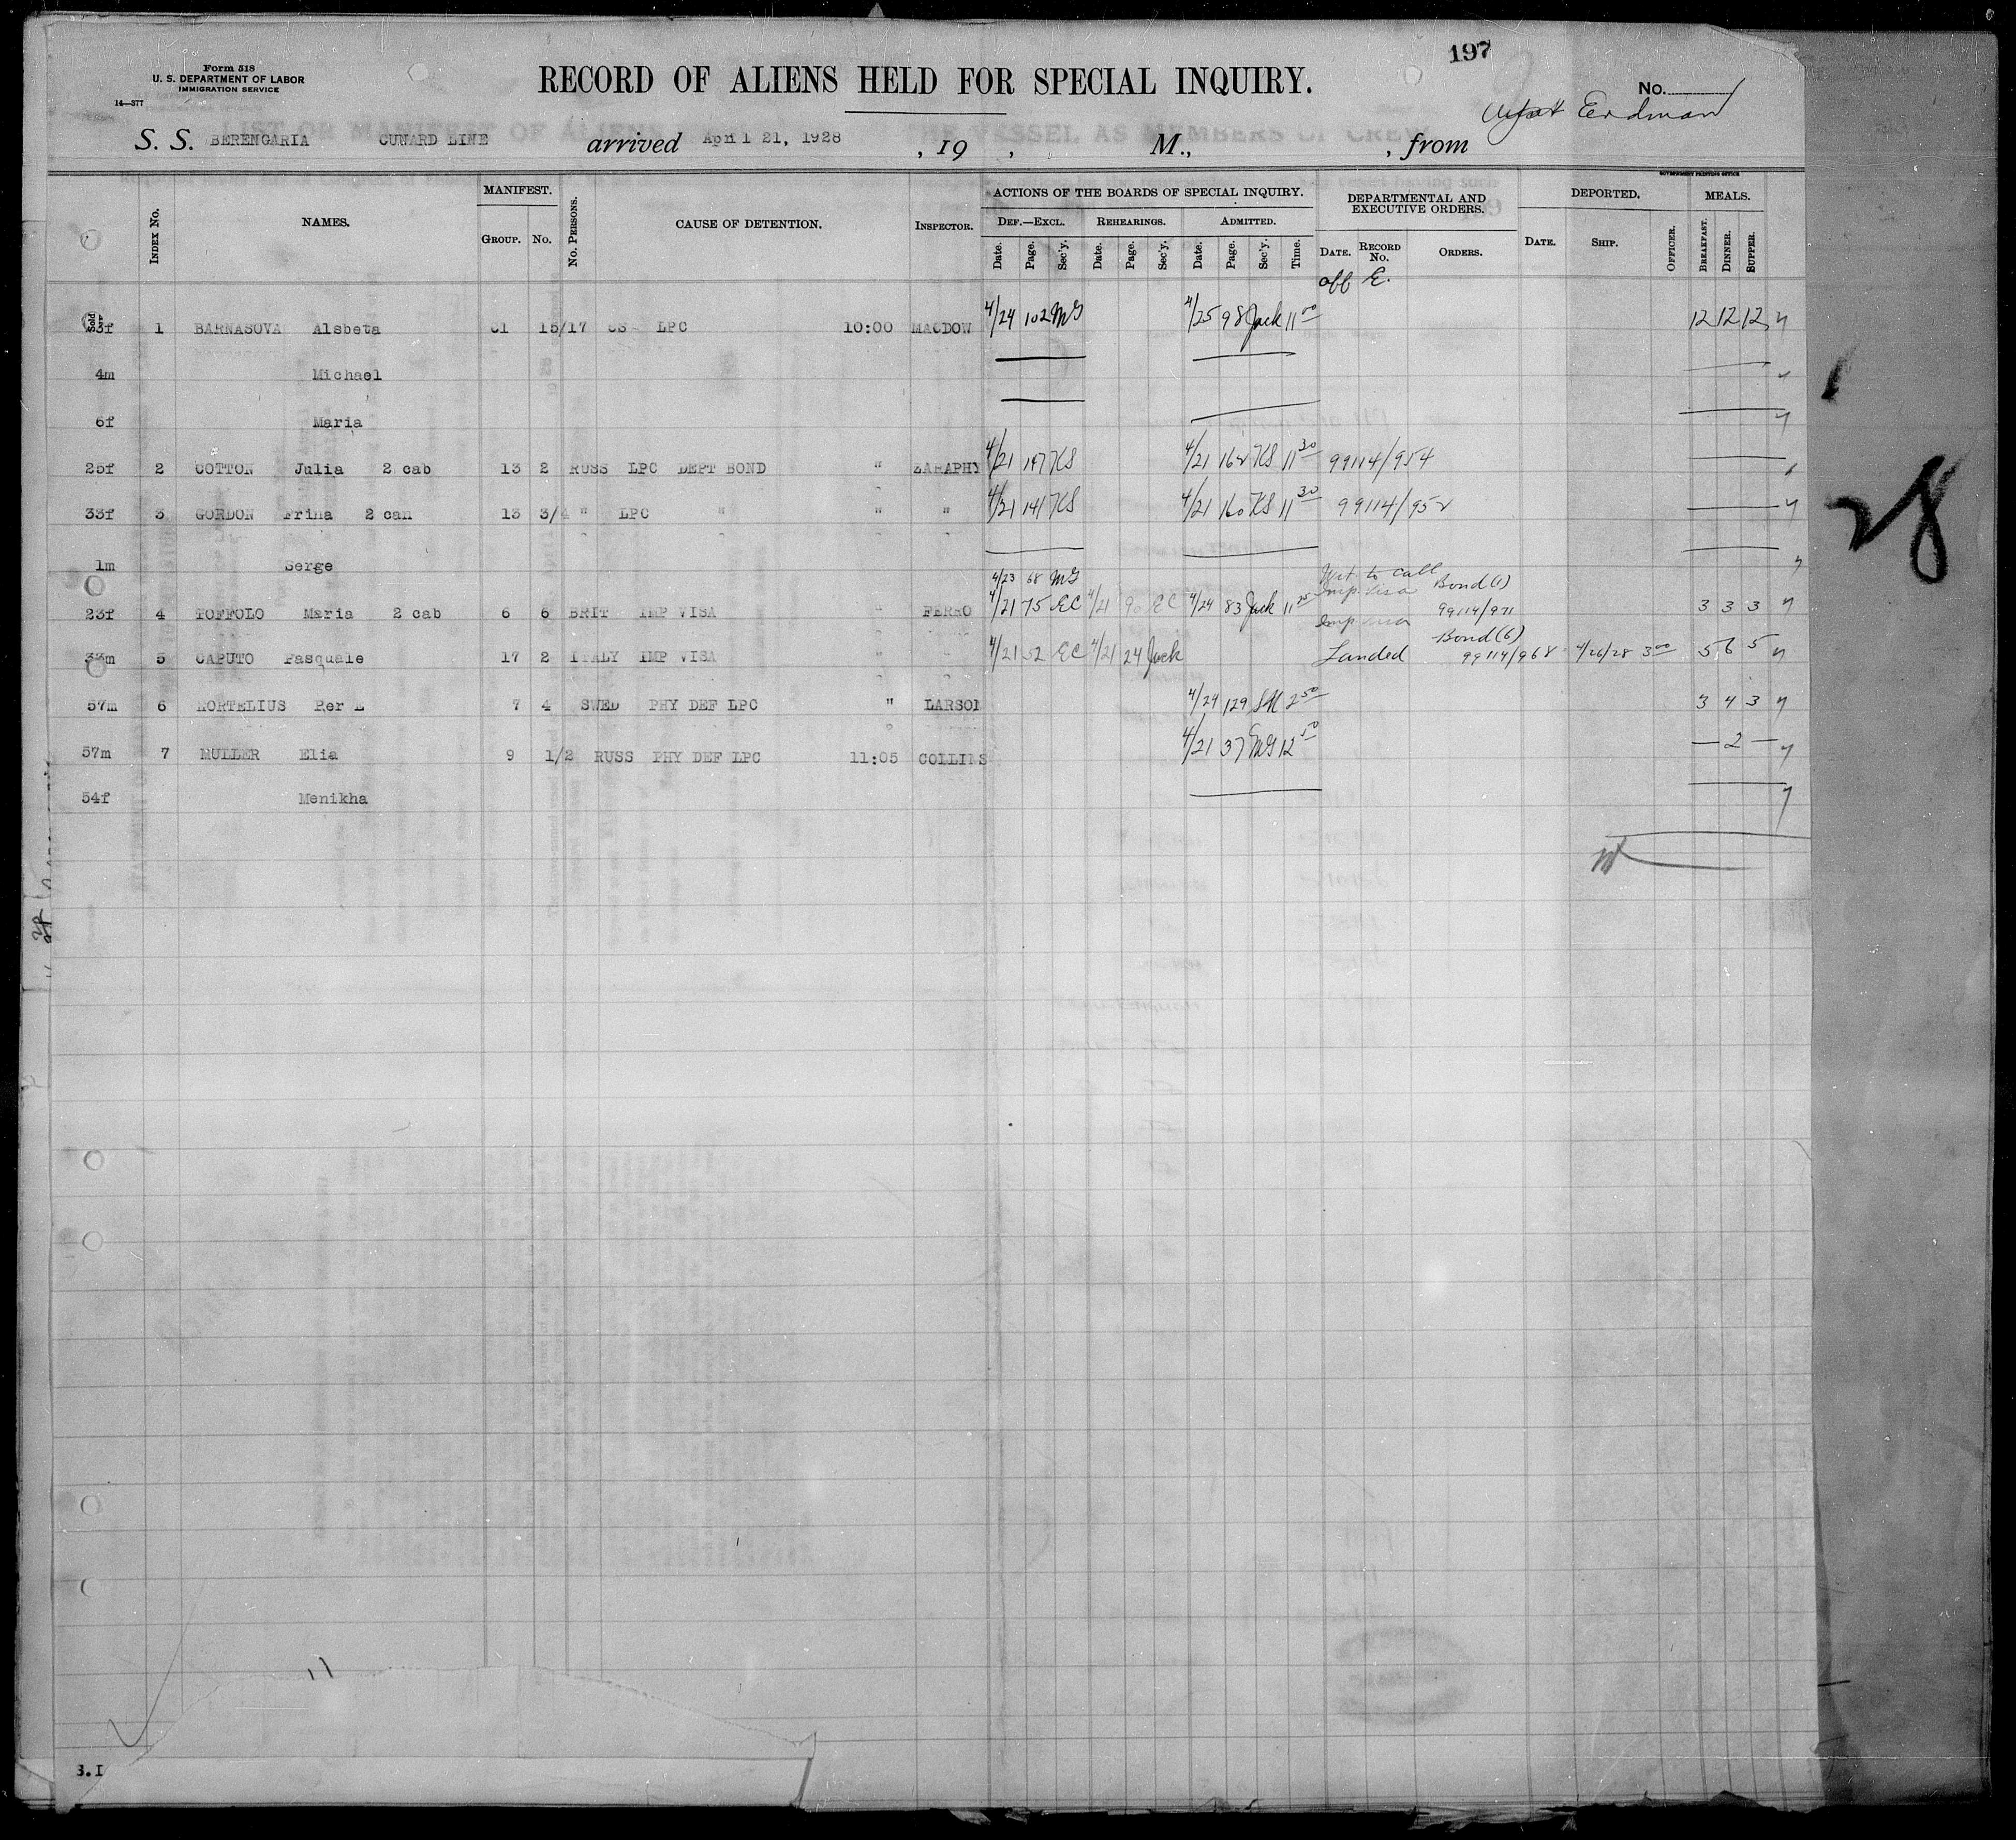 197
Form 518
U. S. DEPARTMENT OF LABOR
IMMIGRATION SERVICE
14—377
RECORD OF ALIENS HELD FOR SPECIAL INQUIRY.
No.
Erdman
S. S. BERENGARIA CUNARD LINE arrived April 21, 1928 , 19 , M., , from
GOVERNMENT PRINTING OFFICE
INDEX NO. NAMES. MANIFEST. GROUP. NO. NO. PERSONS. CAUSE OF DETENTION. INSPECTOR. ACTIONS OF THE BOARDS OF SPECIAL INQUIRY. DEPARTMENTAL AND EXECUTIVE ORDERS. DEPORTED. MEALS.
DEF.—EXCL. REHEARINGS. ADMITTED.
Date. Page. Sec'y. Date. Page. Sec'y. Date. Page. Sec'y. Time. DATE. RECORD NO. ORDERS. DATE. SHIP. OFFICER. BREAKFAST. DINNER. SUPPER.
off E.
1 BARNASOVA Alsbeta 15/17 LPC 10:00 MACDOW 4/24 102 MG 4/25 98 Jack 11 00 12 12 12
4m Michael
6f Maria
25f 2 COTTON Julia 2 cab 13 2 RUSS LPC DEPT BOND " ZARAPHY 4/21 147 KS 4/21 162 KS 11 30 99114/954
33f 3 GORDON 2 can 13 3/4 " LPC " " " 4/21 141 KS 4/21 160 KS 11 30 99114/952
1m Serge
4/23 68 MG to call Bond(1)
23f 4 TOFFOLO Maria 2 cab 6 6 BRIT IMP VISA " FERRO 4/21 75 EC 4/21 90 EC 4/24 83 Jack 11 Imp visa 99114/971 3 3 3
Bond(6)
33m 5 CAPUTO Pasquale 17 2 ITALY IMP VISA " " 4/21 52 EC 4/21 24 Jack Landed 99114/968 4/26/28 3 00 5 6 5
57m 6 Per 7 4 SWED PHY DEF LPC " LARSON 4/24 129 SH 2 50 3 4 3
57m 7 MULLER Elia 9 1/2 RUSS PHY DEF LPC 11:05 COLLINS 4/21 37 MG 12 50 — 2 —
54f Menikha
28
3.I